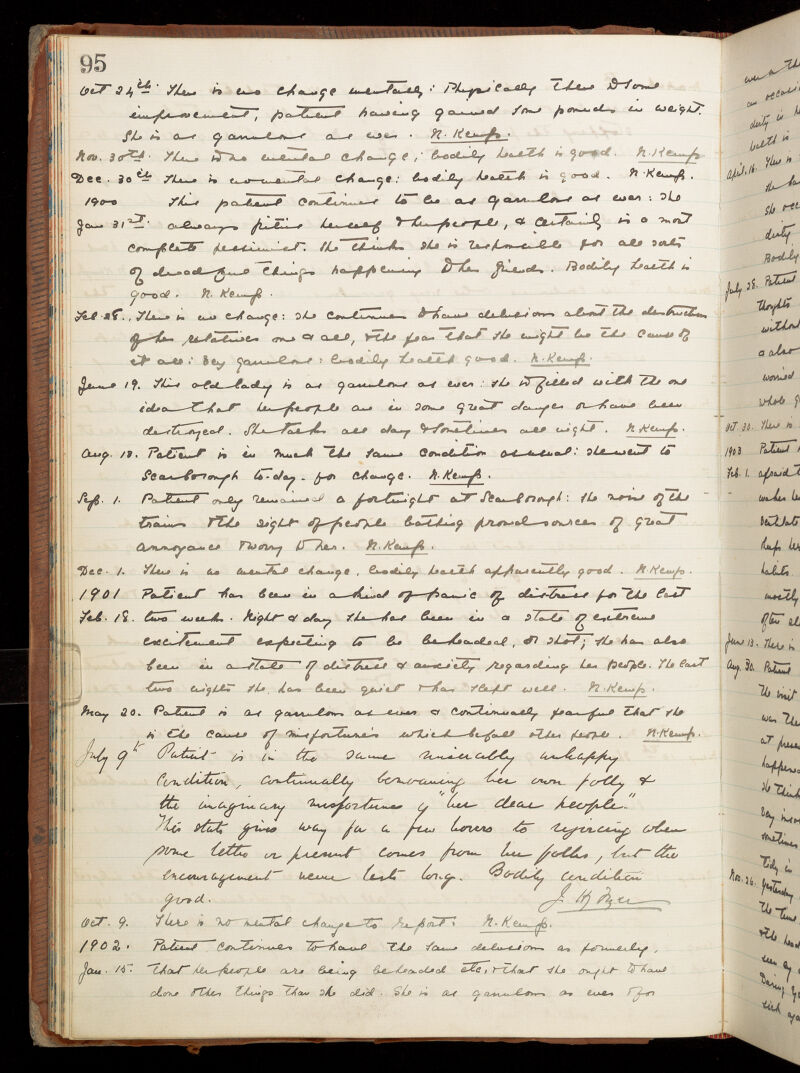 95
Oct 24th. There is no change mentally: Physically there is some
improvement, patient having gained some pounds in weight.
She is as garrulous as ever. N. Kemp.
Nov. 30th. There is no mental change; bodily health is good. N. Kemp
Dec. 30th There is no mental change: bodily health is good. N. Kemp.
1900 This patient continues to be as garrulous as ever: she
Jan 31st. always pities herself & her people, & certainly is a most
complete pessimist. She thinks she is responsible for all sorts
of dreadful things happening to her friends. Bodily health is
good. N. Kemp.
Feb. 28. There is no change: she continues to have delusions about the destruction
of her relatives one & all, & the fear that she might be the cause of
it all: very garrulous: bodily health good. N. Kemp.
June 19. This old lady is as garrulous as ever: she is filled with the one
idea that her people are in some great danger or have been
destroyed. She talks all day & sometimes all night. N. Kemp.
Aug. 18. Patient is in much the same condition as usual: she went to
Scarborough to-day for change. N. Kemp.
Sep. 1. Patient only remained a fortnight at Scarborough: the noise of the
trains & the sight of people bathing proved sources of great
annoyance & worry to her. N. Kemp.
Dec. 1. There is no mental change, bodily health apparently good. N. Kemp.
1901 Patient has been in a kind of panic of distress for the last
Feb. 18. two weeks. Night & day she has been in a state of extreme
excitement expecting to be beheaded, or shot; she has also
been in a state of distress & anxiety regarding her people. The last
two nights she has been quiet & has slept well. N. Kemp.
May 20. Patient is as garrulous as ever & continually fearful that she
is the cause of misfortunes which befall other people. N. Kemp.
July 9th Patient is in the same miserably unhappy
condition, continually bemoaning her own folly &
the imaginary misfortunes of "her dear people."
This state gives way for a few hours to rejoicing when
some letter or present comes from her folks, but the
encouragement never lasts long. Bodily condition
good. J.
Oct. 9. There is no mental change to report. N. Kemp.
1902. Patient continues to have the same delusions as formerly,
Jan. 15. that her people are being beheaded etc. & that she ought to have
done other things than she did. She is as garrulous as ever & for
an occasi
duty is
health is
April. 16. She is
she occ
duty
Bodily
July 28. Patient
thoughts
without
a also
worried
whole
Oct. 30. There is
1903 Patient
Feb. 1. afraid
habits
mostly
June 13. There is
Aug. 30. Patient
the visit
was the
at prese
happened
she think
sometimes
Nov. 26. yesterday
the time